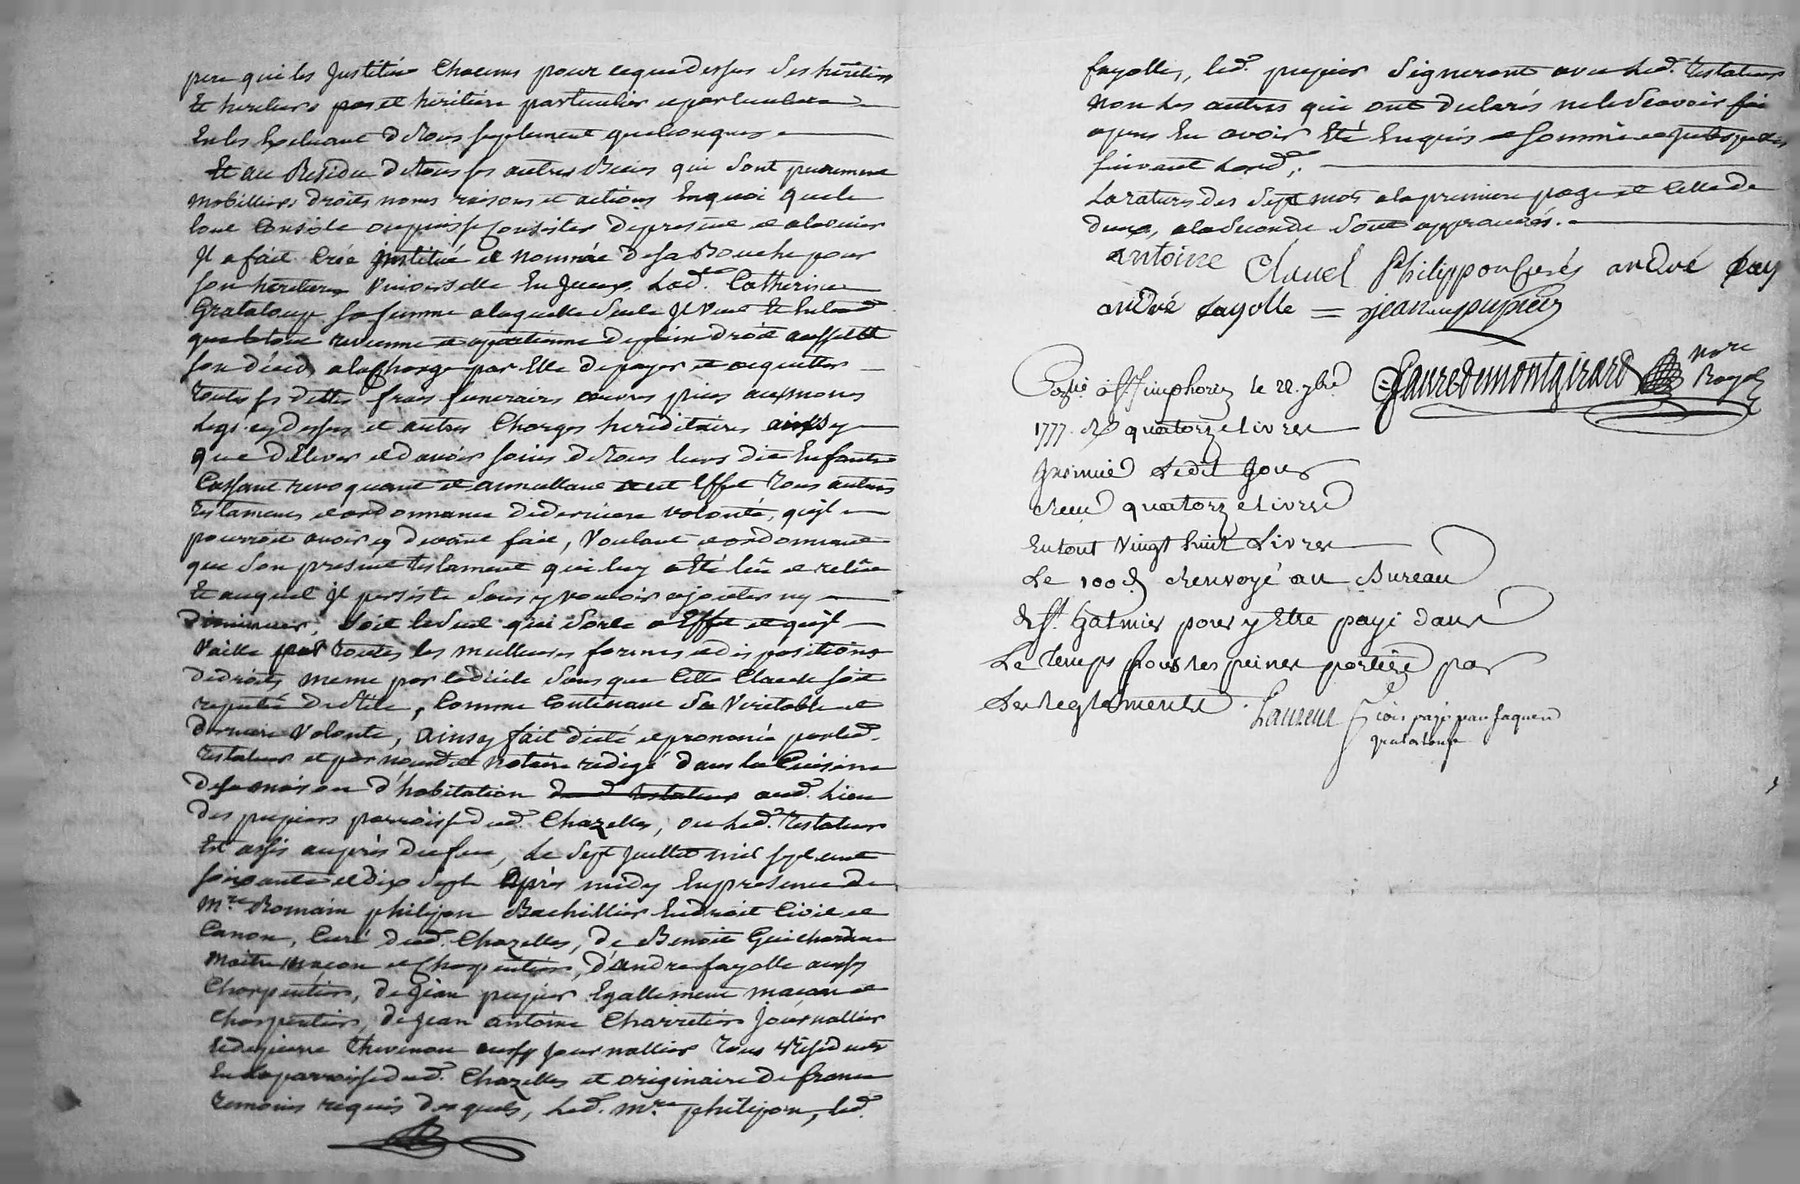 pere qui les Justitüe Chacuns pour ce que dessus ses héritiers
Et héritiere par et héritiere particulier et particuliere
En les Excluant de tous supplement quelconques
Et au Residu de tous ses autres Biens qui sont purement
mobilliers droits noms raisons et actions En quoi que le
tout Consiste ou puisse Consister de present et alavenir
Jl a fait Créé institué et nommée de sa Bouche pour
son héritiere Universelle lad.e Catherine
Grataloup sa femme a laquelle seule Jl Veut Et Entend
que le tout revienne et apartienne de plein droit aussitôt
son décéd, a la Charge par Elle de payer et acquitter
toutes ses dettes frais funeraires œuvres pies aumones
legs cydessus et autres Charges héréditaires ainsy
que d'Eliver et d'avoir soins de tous leurs dit Enfants
Cassant revoquant et annullant Effet tous autres
testaments et ordonnance de derniere volonté, qu'il
pourroit avoir cy devant fait, Voulant et ordonnant
que son present testament qui luy a Eté lû et relûe
Et auquel Jl persiste sans y vouloir ajouter ny
diminuer, soit le seul qui sorte a Effet et qu'il
Vaille par toutes les meilleures formes et dispositions
de droits meme par Codicile sans que Cette Clause soit
reputé de stile, Comme Contenant sa Veritable et
derniere Volonté, ainsy fait dicté et prononcé par led.
testateur et par nousdit Notaire redigé dans la Cuisine
de sa maison d'habitation dud testateur aud. Lieu
des pupiers parroisse dud. Chazelles, ou led. testateur
Est assis auprés du feu, Le Sept Juillet mil sept cent
soixante et dix Sept après midy En presence de
m.re Romain philipon Bachillier En droit Civil et
Canon, Curé dud. Chazelles, de Benoit Guichard
maitre macon et Charpentier, d'andre fayolle aussy
Charpentier, de jean pupier Egallement macon et
charpentier, de jean antoine Charretier journallier
Et de pierre thevenon aussy journallier tous résidents
En la parroisse dud. Chazelles et originaire de france
temoins requis desquels, led. m.re philipon, led.
fayolle, led. pupier signeront avec led. testateur
non les autres qui ont declarés ne le sçavoir
apres En avoir Eté Enquis et sommé
suivant Lord.e
La rature des sept mots a la premiere page et celle de
deux, a la seconde sont approuvées.
antoine Clavel Philippon Curés andvé fay
andvé fayolle = jean pupier
Faure de montgirard nore
Royal
Controllé a St. Simphorien le 22. 7bre
1777. R quatorze livres
Jnsinué Ledit Jour
Receu quatorze livres
En tout Vingt huit Livres
Le 100.e Renvoyé au Bureau
de St. Galmier pour y Etre payé dans
Le temps sous les peines portées par
Les reglements. Laurent